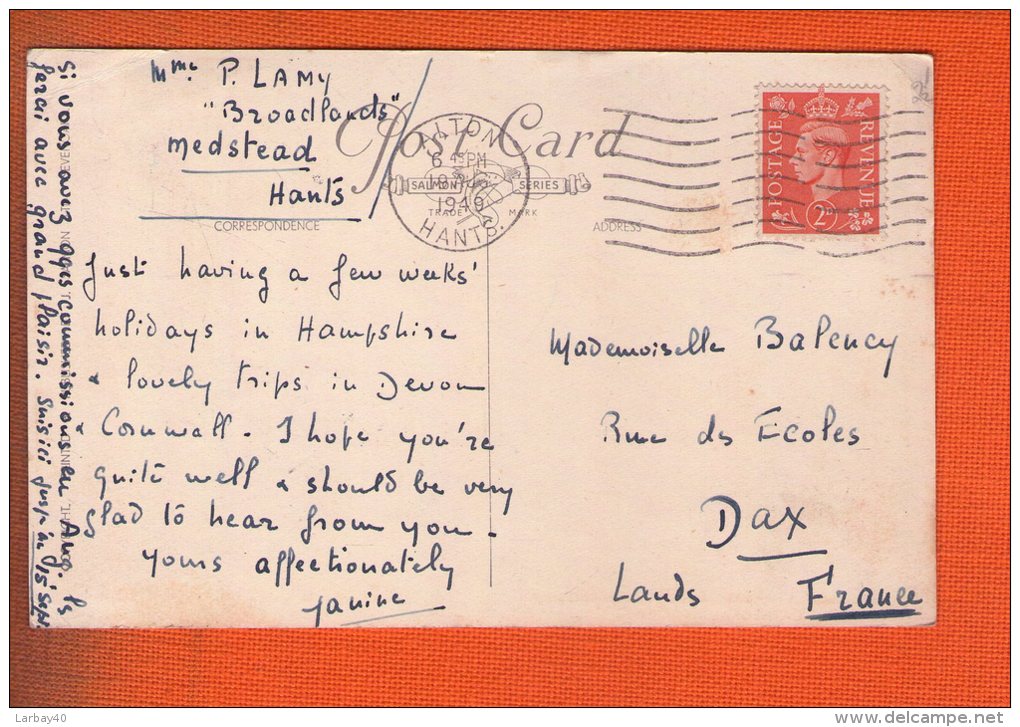 Mme P. LAMY
"Broadlands"
Medstead
Hants
Post Card
ALTON
6 45 PM
1949
HANTS.
SALMON SERIES
TRADE MARK
CORRESPONDENCE
ADDRESS
POSTAGE
REVENUE
2D
Just having a few weeks'
holidays in Hampshire
& lovely trips in Devon
& Cornwall. I hope you're
quite well & should be very
glad to hear from you.
yours affectionately
Janine
Si vous avez qqes commissions en Ang. les
ferai avec grand plaisir. Suis ici jusqu'au 15 Sept.
Mademoiselle Balency
Rue des Ecoles
Dax
Lands
France
Larbay40
www.delcampe.net